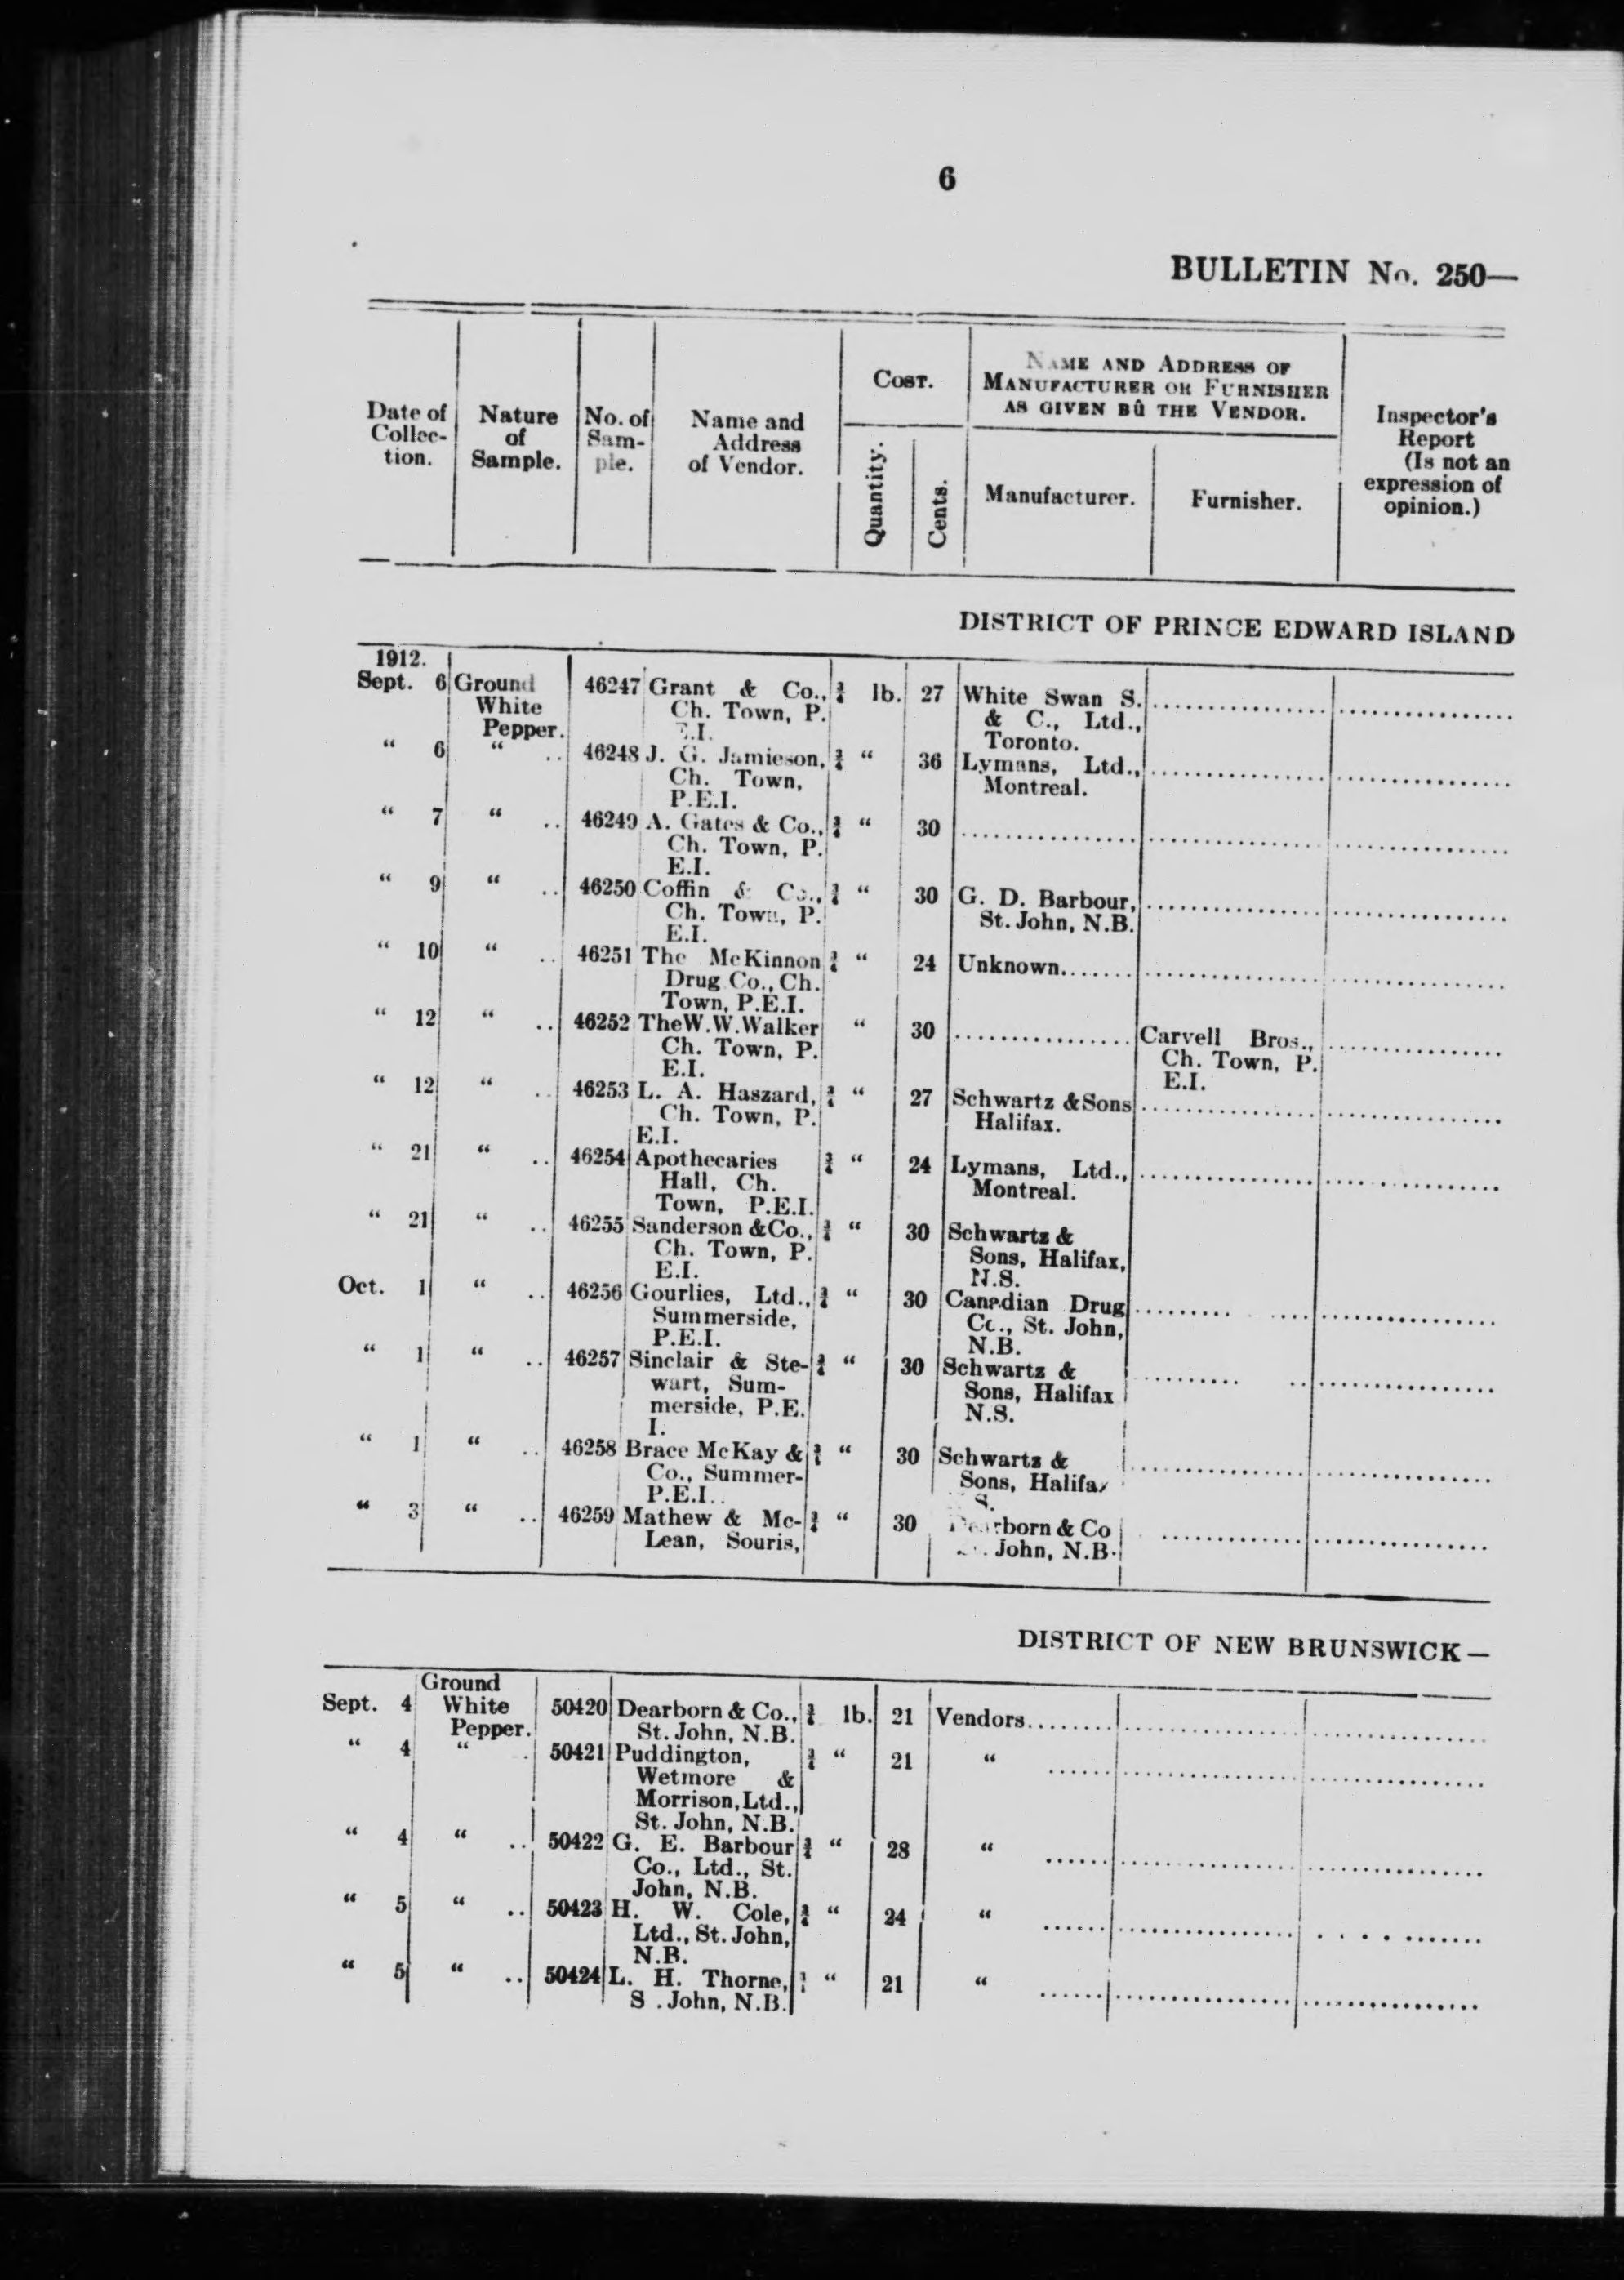 6
BULLETIN No. 250—
Date of Collec- tion.
Nature of Sample.
No. of Sam- ple.
Name and Address of Vendor.
Cost.
Quantity.
Cents.
NAME AND ADDRESS OF MANUFACTURER OR FURNISHER AS GIVEN BÛ THE VENDOR.
Manufacturer.
Furnisher.
Inspector's Report (Is not an expression of opinion.)
DISTRICT OF PRINCE EDWARD ISLAND
1912.
Sept. 6 Ground 46247 Grant & Co., ¾ lb. 27 White Swan S. ..............
White Ch. Town, P. & C., Ltd.,
Pepper. E.I. Toronto.
" 6 " .. 46248 J. G. Jamieson, ¾ " 36 Lymans, Ltd., ..............
Ch. Town, Montreal.
P.E.I.
" 7 " .. 46249 A. Gates & Co., ¾ " 30 ..............
Ch. Town, P.
E.I.
" 9 " .. 46250 Coffin & Co., ¾ " 30 G. D. Barbour, ..............
Ch. Town, P. St. John, N.B.
E.I.
" 10 " .. 46251 The McKinnon ¾ " 24 Unknown. ..............
Drug Co., Ch.
Town, P.E.I.
" 12 " .. 46252 The W. W. Walker " 30 .............. Carvell Bros., ..............
Ch. Town, P. Ch. Town, P.
E.I. E.I.
" 12 " .. 46253 L. A. Haszard, ¾ " 27 Schwartz & Sons ..............
Ch. Town, P. Halifax.
E.I.
" 21 " .. 46254 Apothecaries ¾ " 24 Lymans, Ltd., ..............
Hall, Ch. Montreal.
Town, P.E.I.
" 21 " .. 46255 Sanderson & Co., ¾ " 30 Schwartz &
Ch. Town, P. Sons, Halifax,
E.I. N.S.
Oct. 1 " .. 46256 Gourlies, Ltd., ¾ " 30 Canadian Drug ..............
Summerside, Co., St. John,
P.E.I. N.B.
" 1 " .. 46257 Sinclair & Ste- ¾ " 30 Schwartz & ..............
wart, Sum- Sons, Halifax
merside, P.E. N.S.
I.
" 1 " .. 46258 Brace McKay & ¾ " 30 Schwartz & ..............
Co., Summer- Sons, Halifax
P.E.I.. S.
" 3 " .. 46259 Mathew & Mc- ¾ " 30 Dearborn & Co ..............
Lean, Souris, John, N.B.
DISTRICT OF NEW BRUNSWICK—
Ground
Sept. 4 White 50420 Dearborn & Co., ¾ lb. 21 Vendors. ..............
Pepper. St. John, N.B.
" 4 " . 50421 Puddington, ¾ " 21 " ..............
Wetmore &
Morrison, Ltd.,
St. John, N.B.
" 4 " .. 50422 G. E. Barbour ¾ " 28 " ..............
Co., Ltd., St.
John, N.B.
" 5 " .. 50423 H. W. Cole, ¾ " 24 " ..............
Ltd., St. John,
N.B.
" 5 " .. 50424 L. H. Thorne, " 21 " ..............
S . John, N.B.